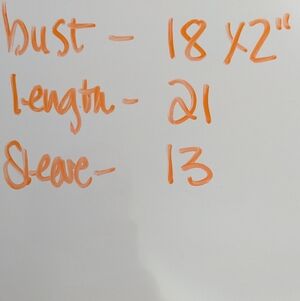 bust - 18 x 2"
Length - 21
Sleeve - 13